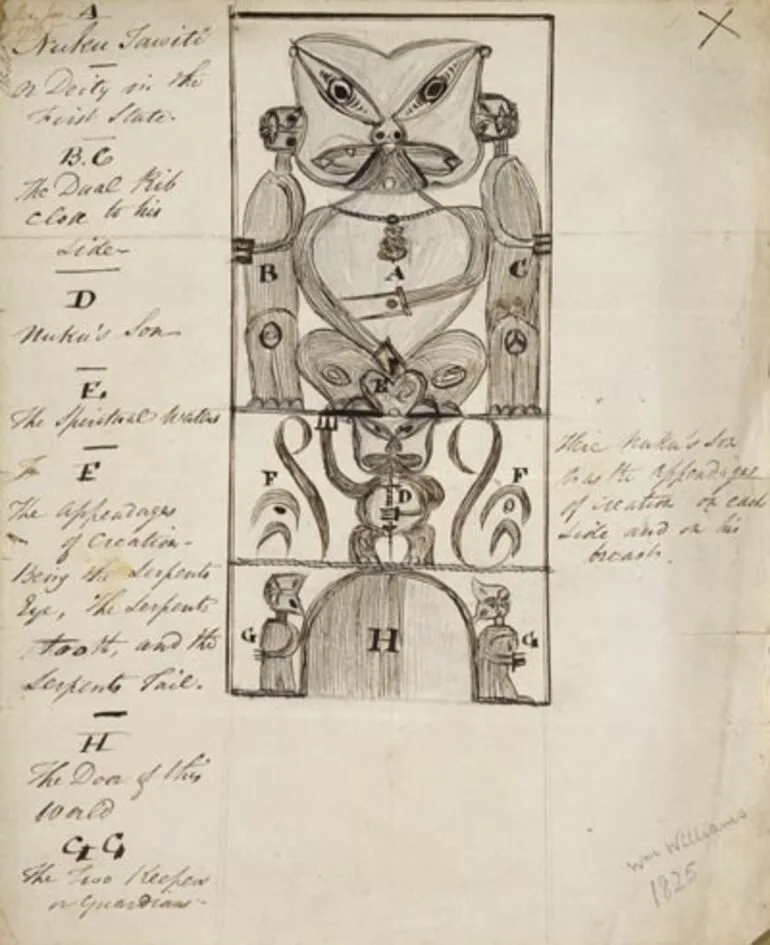 A
Nuku Tawiti
or Deity in the
First State.
B.C
The Dual Rib
close to his
side
D
Nuku's Son
E
The Spiritual Waters
F
The Appendages
of Creation-
Being the Serpents
Eye, The Serpents
tooth, and the
Serpents Tail.
H
The Door of this
World
G G
The Two Keepers
or Guardians
A
B
C
E
D
F
F
G
G
H
Nuku's Son
has the appendages
of creation on each
side and on his
breast.
Wm Williams
1825